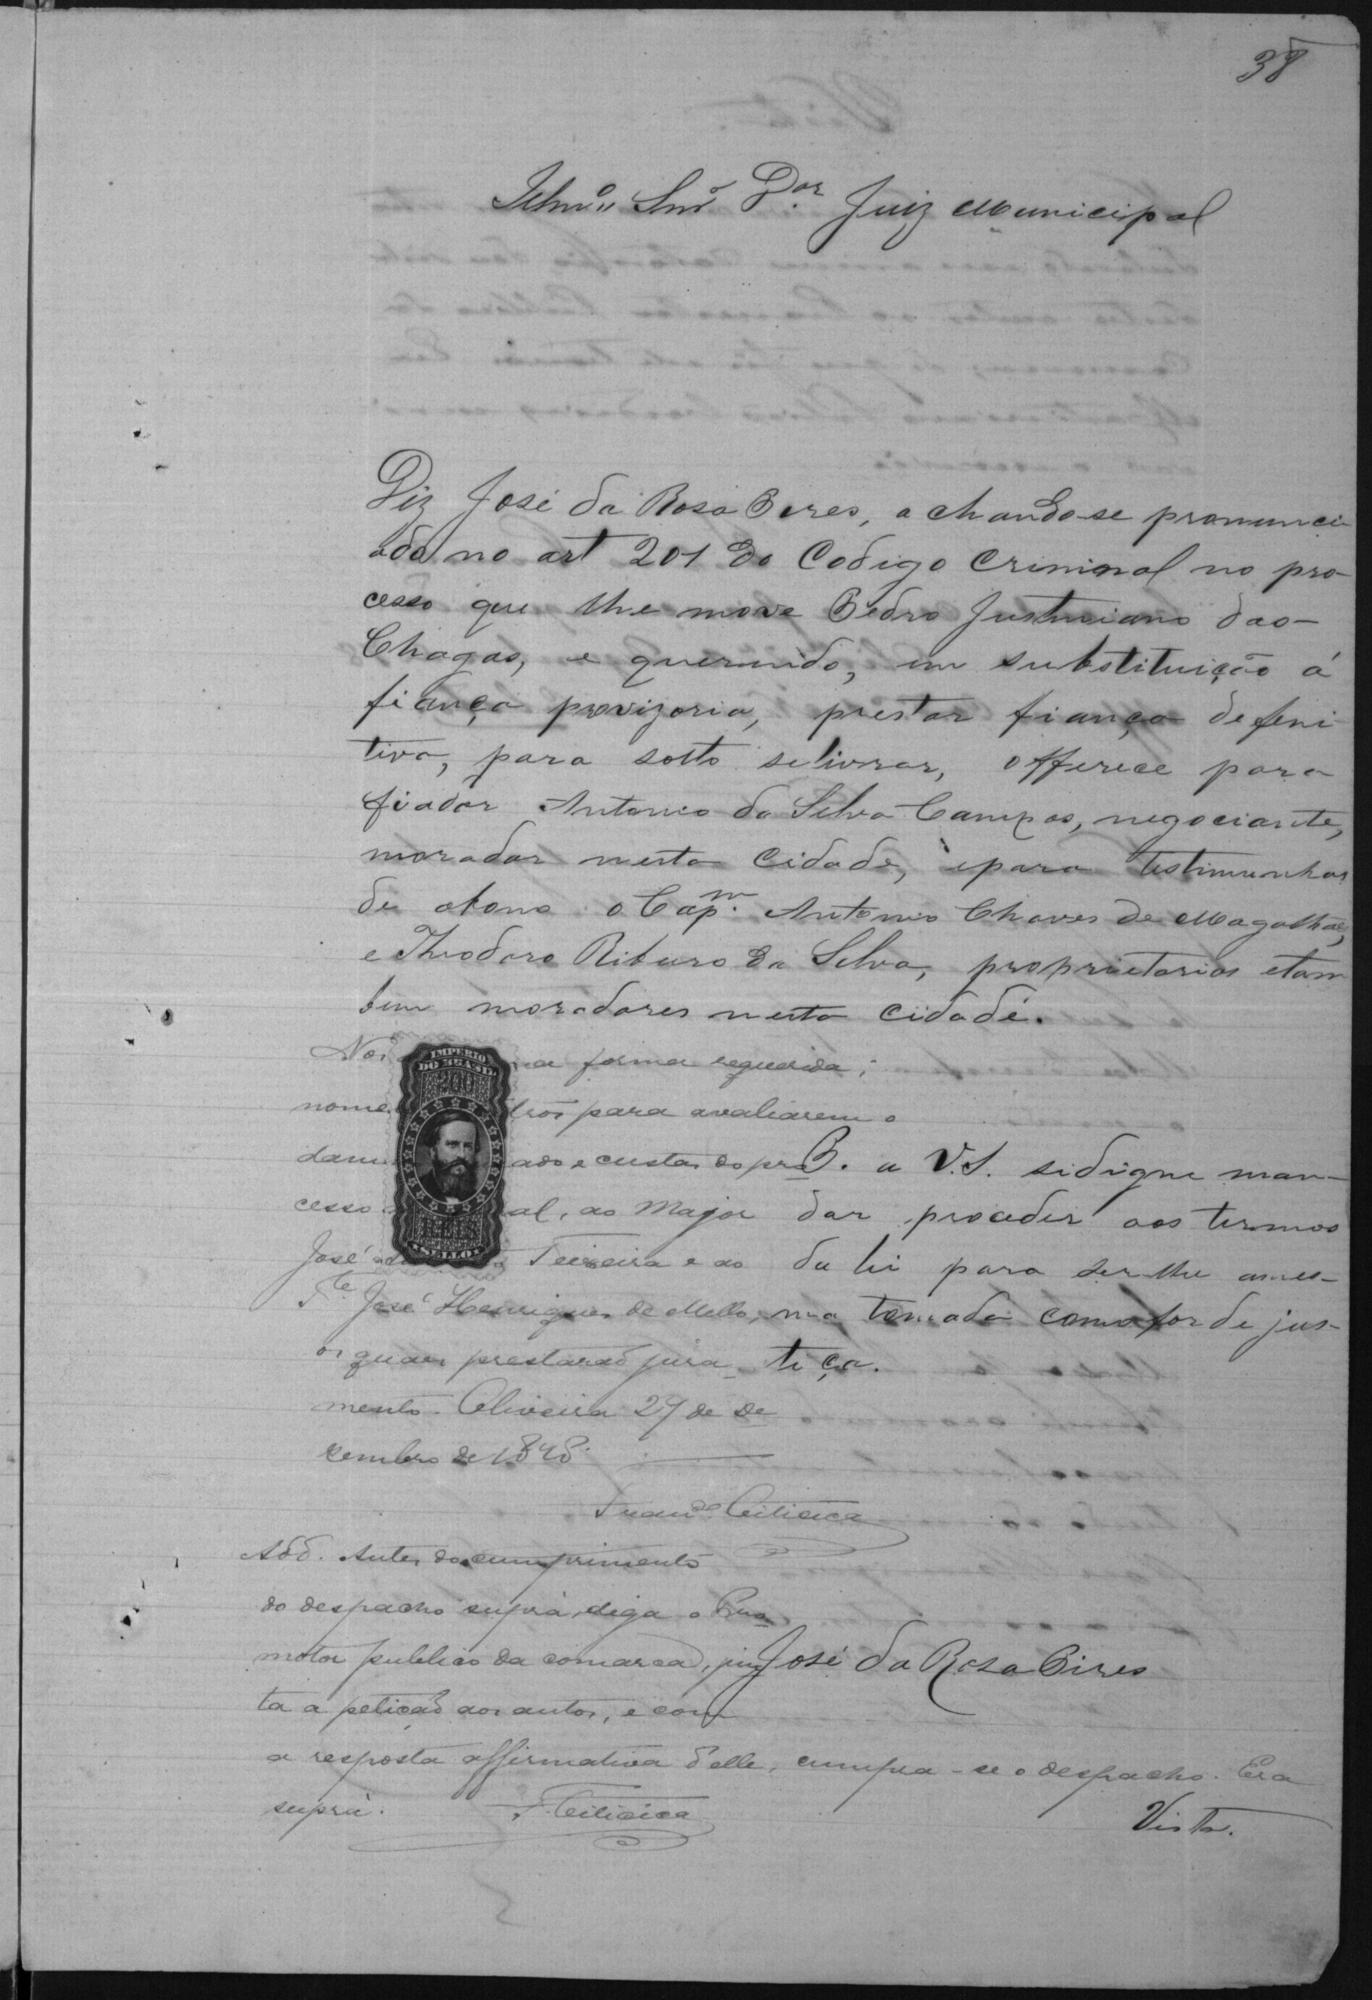 38
Illmo. Snr. Dor. Juiz Municipal
Diz José da Rosa Pires, achando-se pronunci-
ado no art 201 do Codigo Criminal no pro-
cesso que lhe move Pedro Justiniano das
Chagas, e querendo, em substituição á
fiança provizoria, prestar fiança defeni-
tiva, para solto selivrar, offerece para
fiador Antonio da Silva Campos, negociante,
morador nesta cidade, epara testimunhas
de abono o Capm. Antonio Chaves de Magalhães,
e Theodoro Ribeiro da Silva, proprietarios etam
bem moradores nesta cidade.
P. a V.S. sidigne man-
dar proceder aos termos
da lei para ser-lhe a mes-
ma tomada como for de jus-
tiça.
José da Rosa Pires
na forma requerida;
para avaliarem o
ado e custas do pro-
cesso al, ao Major
José Teixeira e ao
Te. José Henriques de Mello,
os quaes prestarão jura-
mento. Oliveira 27 de De
cembro de 1878.
Add. Antes do cumprimento
do despacho suprà, diga o Pro
motor publico da comarca, jun
ta a petição aos autos, e com
a resposta affirmativa d'elle, cumpra-se o despacho. Era
suprà.
Vista.
IMPERIO
DO BRASIL
200
SELLO